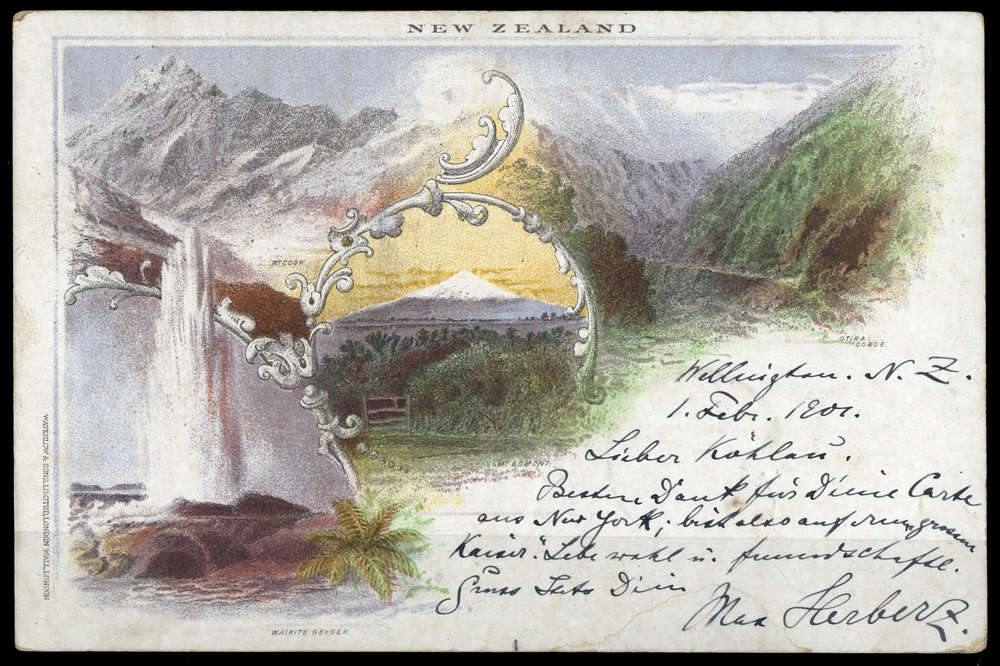 NEW ZEALAND
MT COOK.
OTIRA GORGE.
MT EGMONT.
WAIKITE GEYSER.
WATERLOW & SONS LIMITED, LONDON WALL, LONDON
Wellington. N. Z.
1. Febr. 1901.
Lieber Köhlau.
Besten Dank für Deine Carte
aus New York; bist also auf dem grossen
Kaiser". Lebe wohl u. freundschaftl.
Gruss Stets Dein
Max Herbert